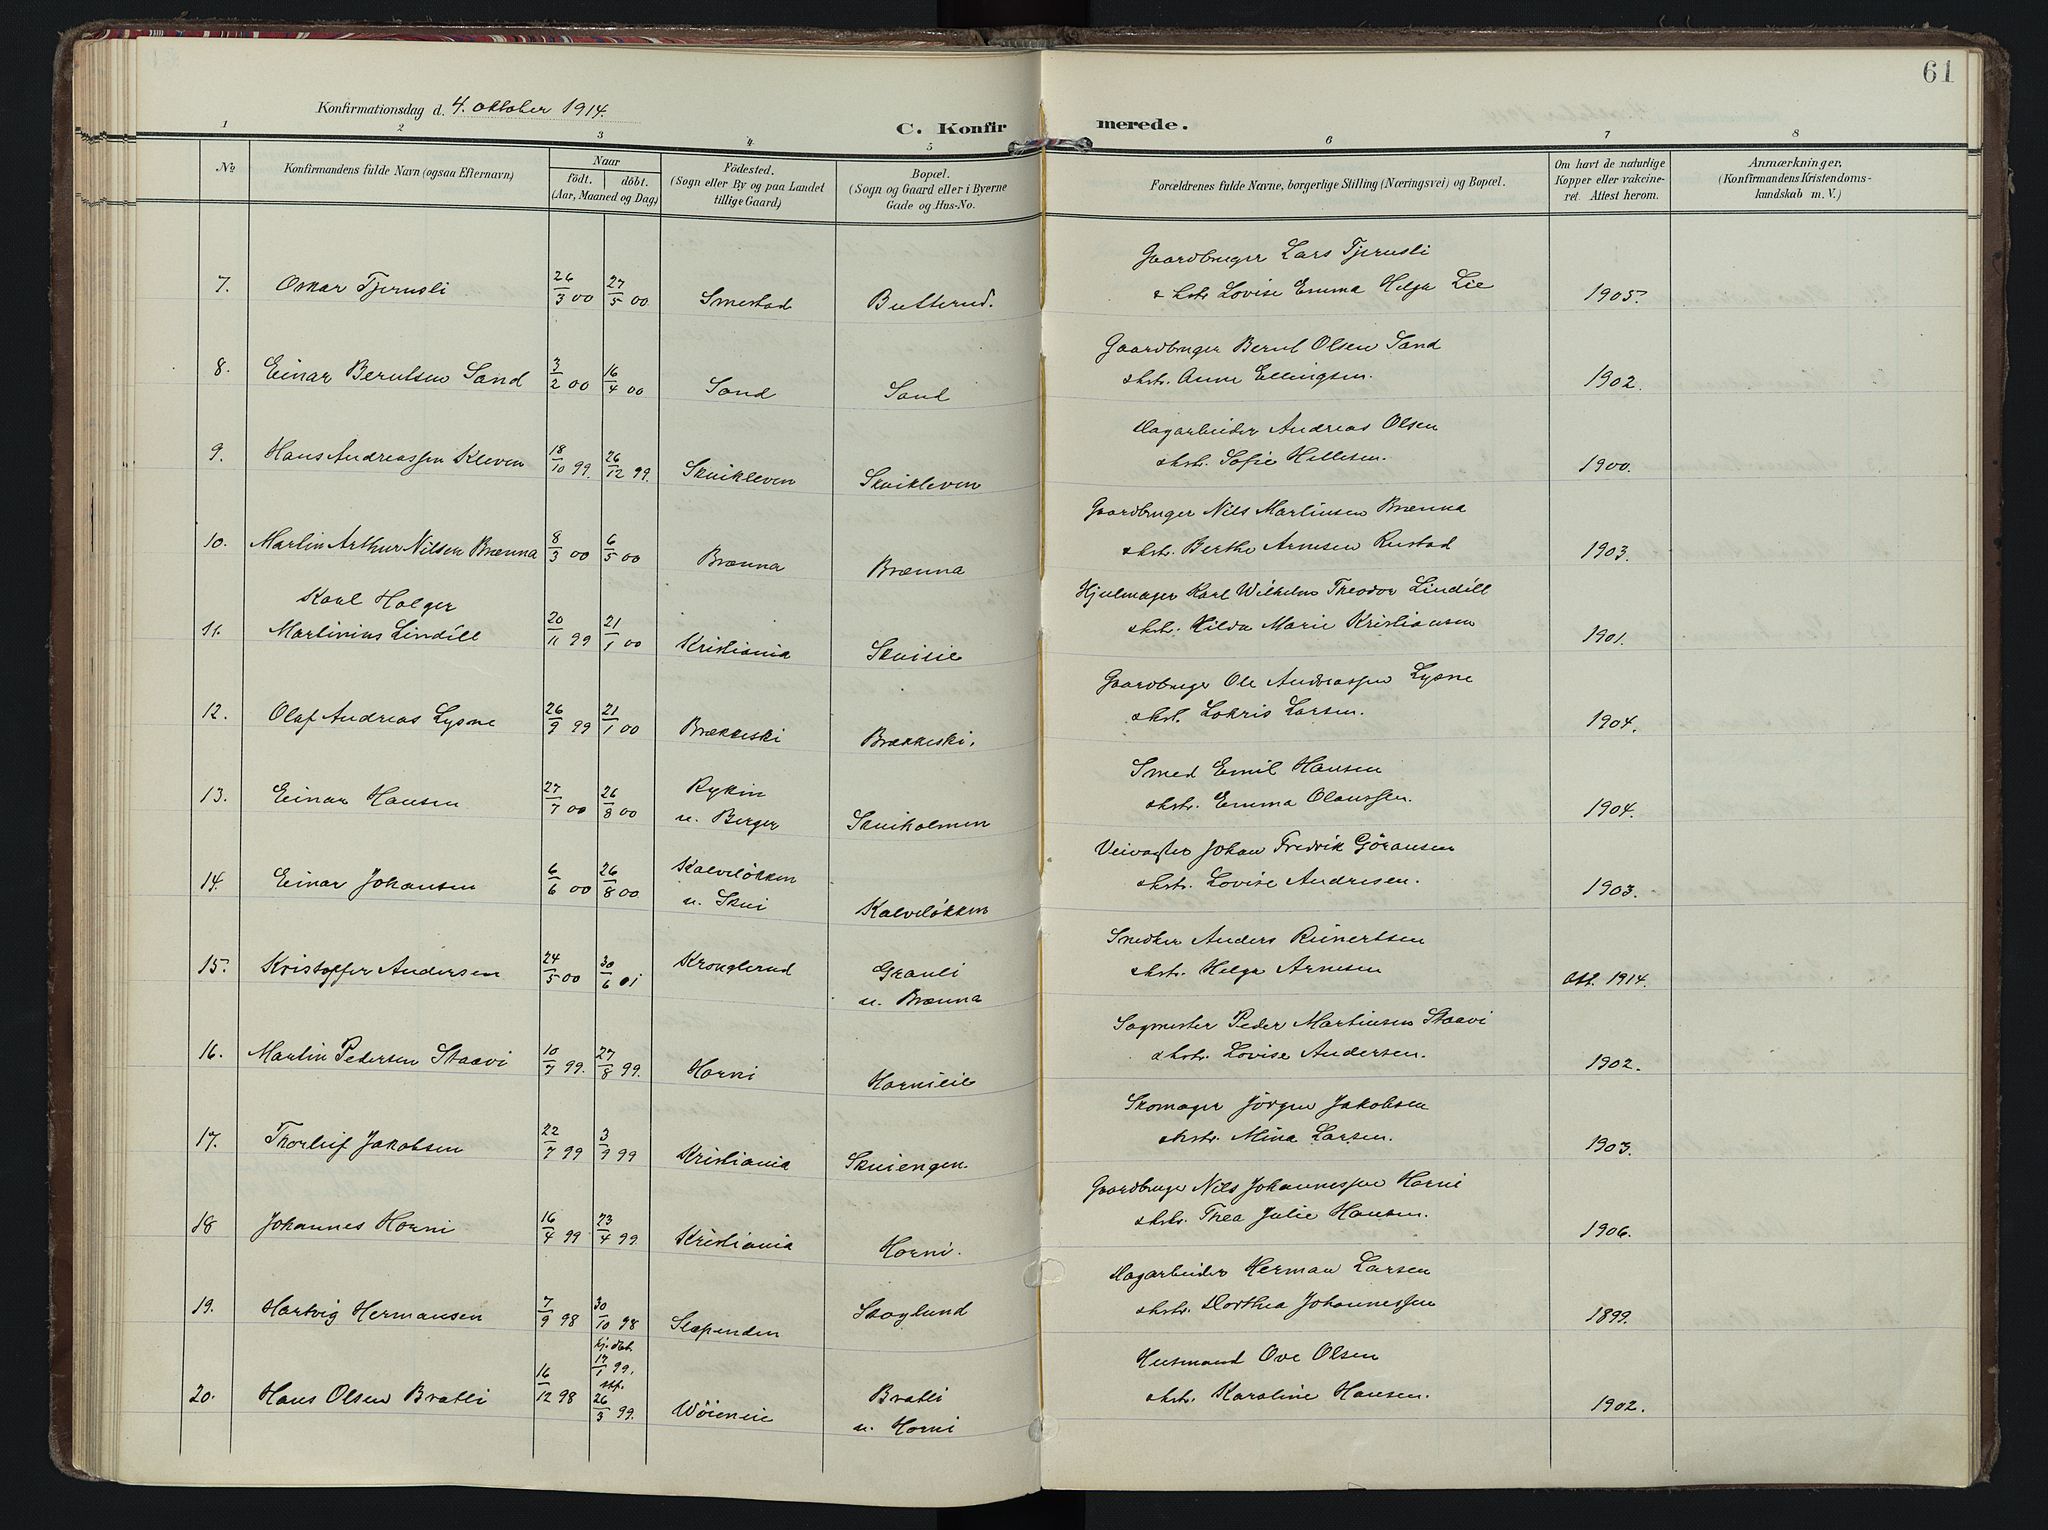 61
Konfirmationsdag d. 4. oktober 1914.
C. Konfirmerede.
1 2 3 4 5 6 7 8
No
Konfirmandens fulde Navn (ogsaa Efternavn)
Naar
födt. döbt.
(Aar, Maaned og Dag)
Födested.
(Sogn eller By og paa Landet
tillige Gaard)
Bopæl.
(Sogn og Gaard eller i Byerne
Gade og Hus-No.
Forældrenes fulde Navne, borgerlige Stilling (Næringsvei) og Bopæl.
Om havt de naturlige
Kopper eller vakcine-
ret. Attest herom.
Anmærkninger.
(Konfirmandens Kristendoms-
kundskab m. V.)
7. Oskar Tjernsli 26/3 00 27/5 00 Smestad Butterud. Gaardbruger Lars Tjernsli
& hstr. Lovise Emma Helga Lie 1905.
8. Einar Berntsen Sand 3/2 00 16/4 00 Sand Sand Gaardbruger Bernt Olsen Sand
& hstr. Anne Ellingsen. 1902.
9. Hans Andreassen Kleven 18/10 99. 26/12 99. Skuikleven Skuikleven Dagarbeider Andreas Olsen
& hstr. Sofie Hellesen. 1900.
10. Martin Arthur Nilsen Brenna 8/3 00 6/5 00 Brænna Brænna Gaardbruger Nils Martinsen Brænna
& hstr. Berthe Arnesen Rustad 1903.
Karl Holger
11. Martinius Lindéll 20/11 99 21/1 00 Kristiania Skuieie Hjulmager Karl Wilhelm Theodor Lindéll
& hstr. Hilda Marie Kristiansen 1901.
12. Olaf Andreas Lysne 26/9 99 21/1 00 Brækkeski Brækkeski. Gaardbruger Ole Andreassen Lysne
& hstr. Lokris Larsen. 1904.
13. Einar Hansen 27/7 00 26/8 00 Rykin
u. Berger Skuiholmen Smed Emil Hansen
& hstr. Emma Olaussen. 1904.
14. Einar Johansen 6/6 00 26/8 00 Kalveløkken
u. Skui Kalveløkken Veivogter Johan Fredrik Göransen
& hstr. Lovise Andresen. 1903.
15. Kristoffer Andersen 24/5 00 30/6 01 Kronglerud Grauli
u. Brænna Snedker Anders Reinertsen
& hstr. Helga Arnesen okt. 1914.
16. Martin Pedersen Staavi 10/7 99. 27/8 99. Horni Hornieie Sagmester Peder Martinsen Staavi
& hstr. Lovise Andersen. 1902.
17. Thorleif Jakobsen 22/7 99 3/9 99 Kristiania Skuiengen. Skomager Jörgen Jakobsen
& hstr. Mina Larsen. 1903.
18 Johannes Horni 16/4 99 23/4 99. Kristiania Horni. Gaardbruger Nils Johannessen Horni
& hstr. Thea Julie Hansen. 1906.
19. Hartvig Hermansen 7/9 98 30/10 98 Slæpenden Skoglund Dagarbeider Herman Larsen
& hstr. Dorthea Johannessen 1899.
20. Hans Olsen Bratli 16/12 98 hj. döbt. 17/1 99. stf. 26/3 99. Wöieneie Bratli
u. Horni Husmand Ove Olsen
& hstr. Karoline Hansen. 1902.